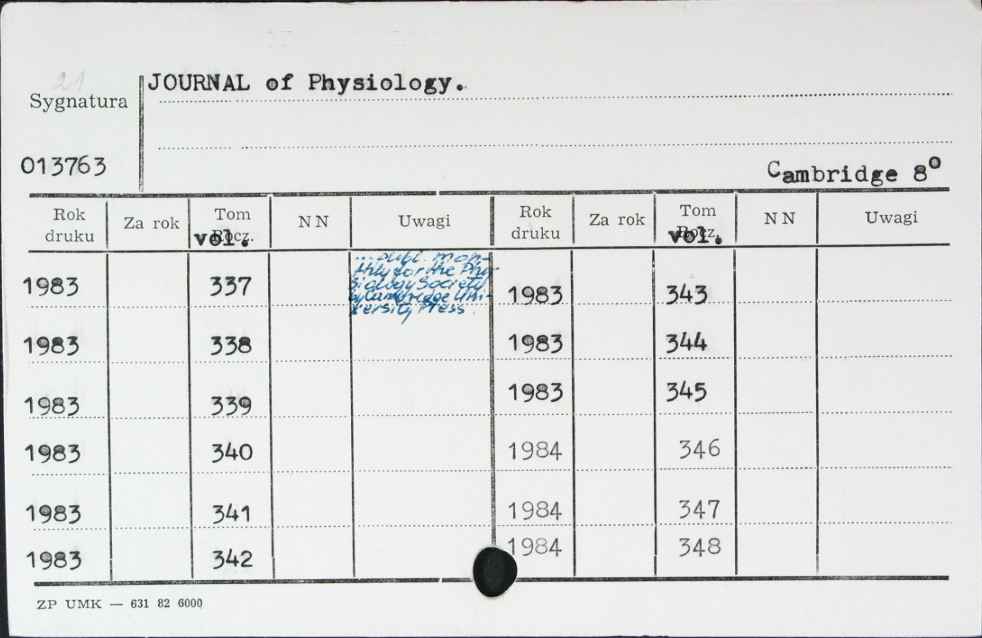 21
JOURNAL of Physiology.
Sygnatura
013763
Cambridge 8°
Rok druku Za rok Tom Rocz. vol. NN Uwagi Rok druku Za rok Tom Rocz. vol. NN Uwagi
1983 337
...publ. mon-
thly for the Phy-
siology Society
by Cambridge Uni-
versity Press.
1983 343
1983 338 1983 344
1983 339 1983 345
1983 340 1984 346
1983 341 1984 347
1983 342 1984 348
ZP UMK — 631 82 6000